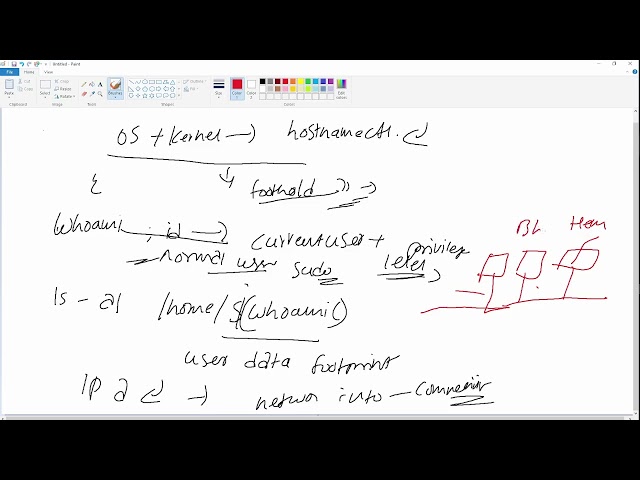 Untitled - Paint
File Home View
Paste Cut Copy Select Crop Resize Rotate Brushes Shapes Outline Fill Size Color 1 Color 2 Edit colors
Clipboard Image Tools Shapes Colors
OS + Kernel → hostnamectl
foothold
Whoami ; id → current user + privilege
normal user sudo level
ls - al /home/$(whoami)
user data footprint
IP a → networ info —